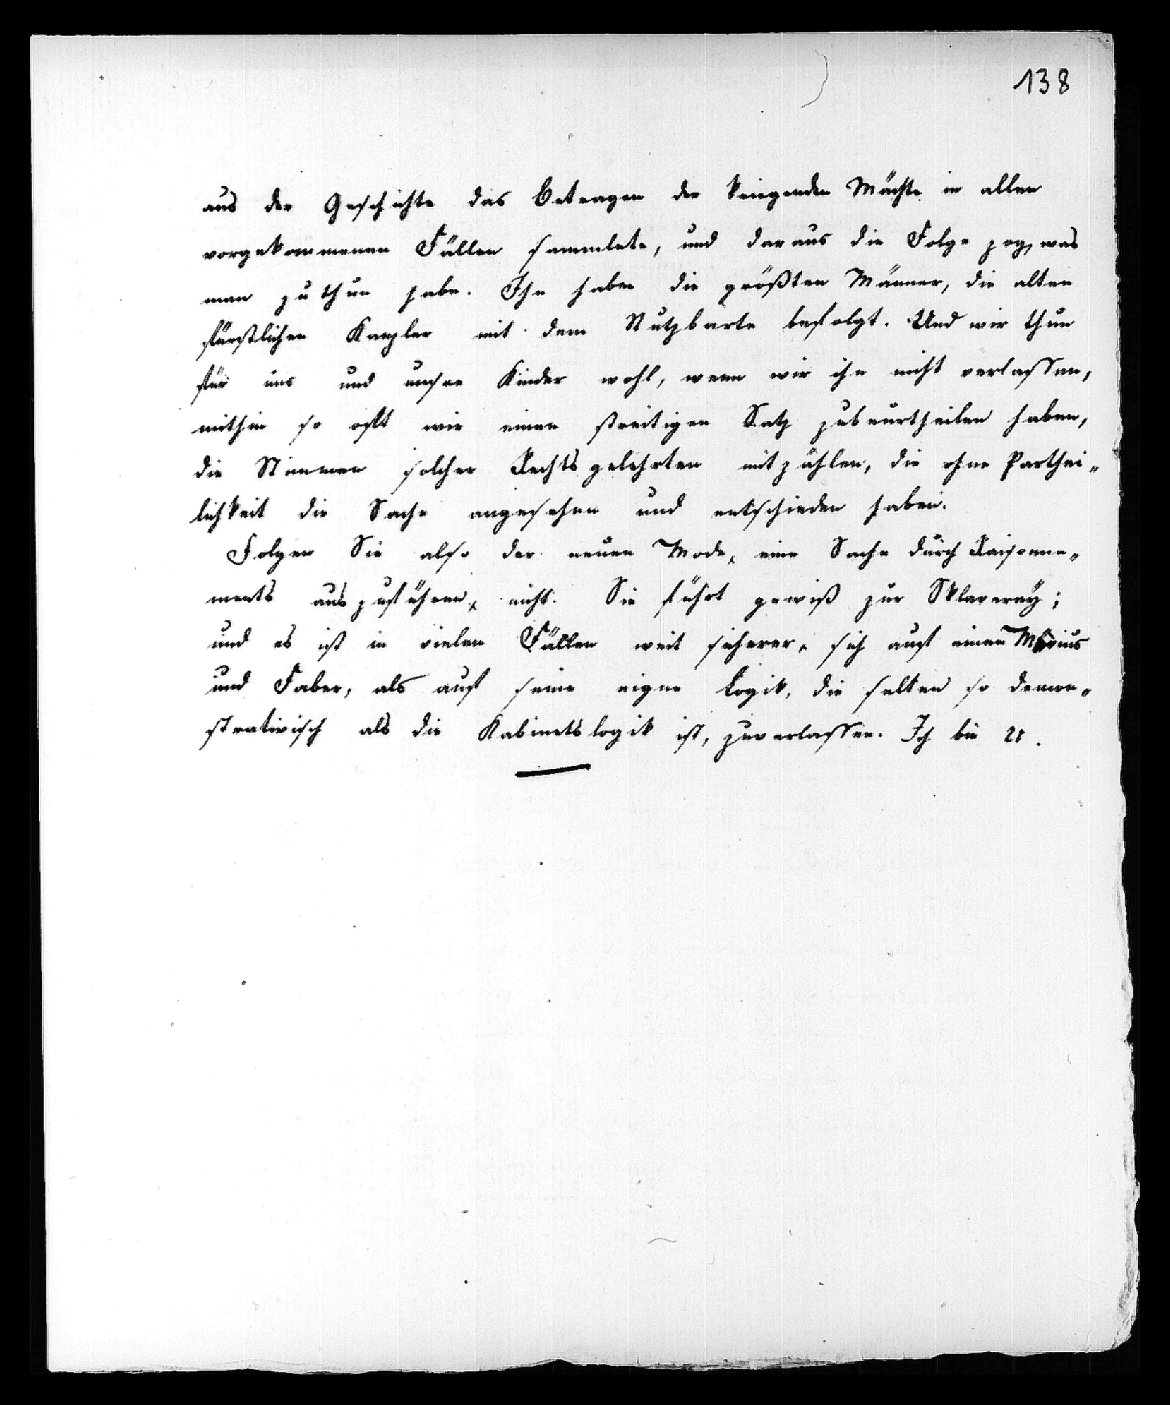 138
aus der Geschichte das Betragen der kriegenden Mächte in allen
vorgekommenen Fällen sammlete, und daraus die Folge zog, was
man zu thun habe. Ihn haben die größten Männer, die alten
fürstlichen Kanzler mit dem Stutzbarte befolgt. Und wir thun
für uns und unsre Kinder wohl, wenn wir ihn nicht verlassen,
mithin so oft wir einen streitigen Satz zubeurtheilen haben,
die Stimmen solcher Rechtsgelehrten mitzählen, die ohne Parthei-
lichkeit die Sache angesehen und entschieden haben.
Folgen Sie also der neuen Mode, eine Sache durch Raisonne-
ments auszuführen, nicht. Sie führt gewiß zur Sklaverey;
und es ist in vielen Fällen weit sicherer, sich auf einen Mevius
und Faber, als auf seine eigne Logik, die selten so demon-
strativisch als die Kabinetslogik ist, zuverlassen. Ich bin